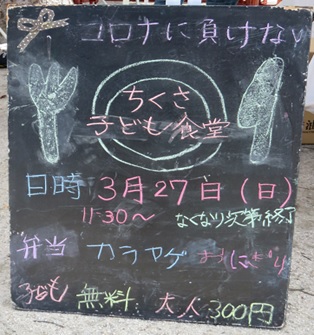 コロナに負けない
ちくさ
子ども食堂
日時 3月27日(日)
11:30～ なくなり次第終了
弁当 カラアゲ おにぎり
子ども 無料 大人 300円